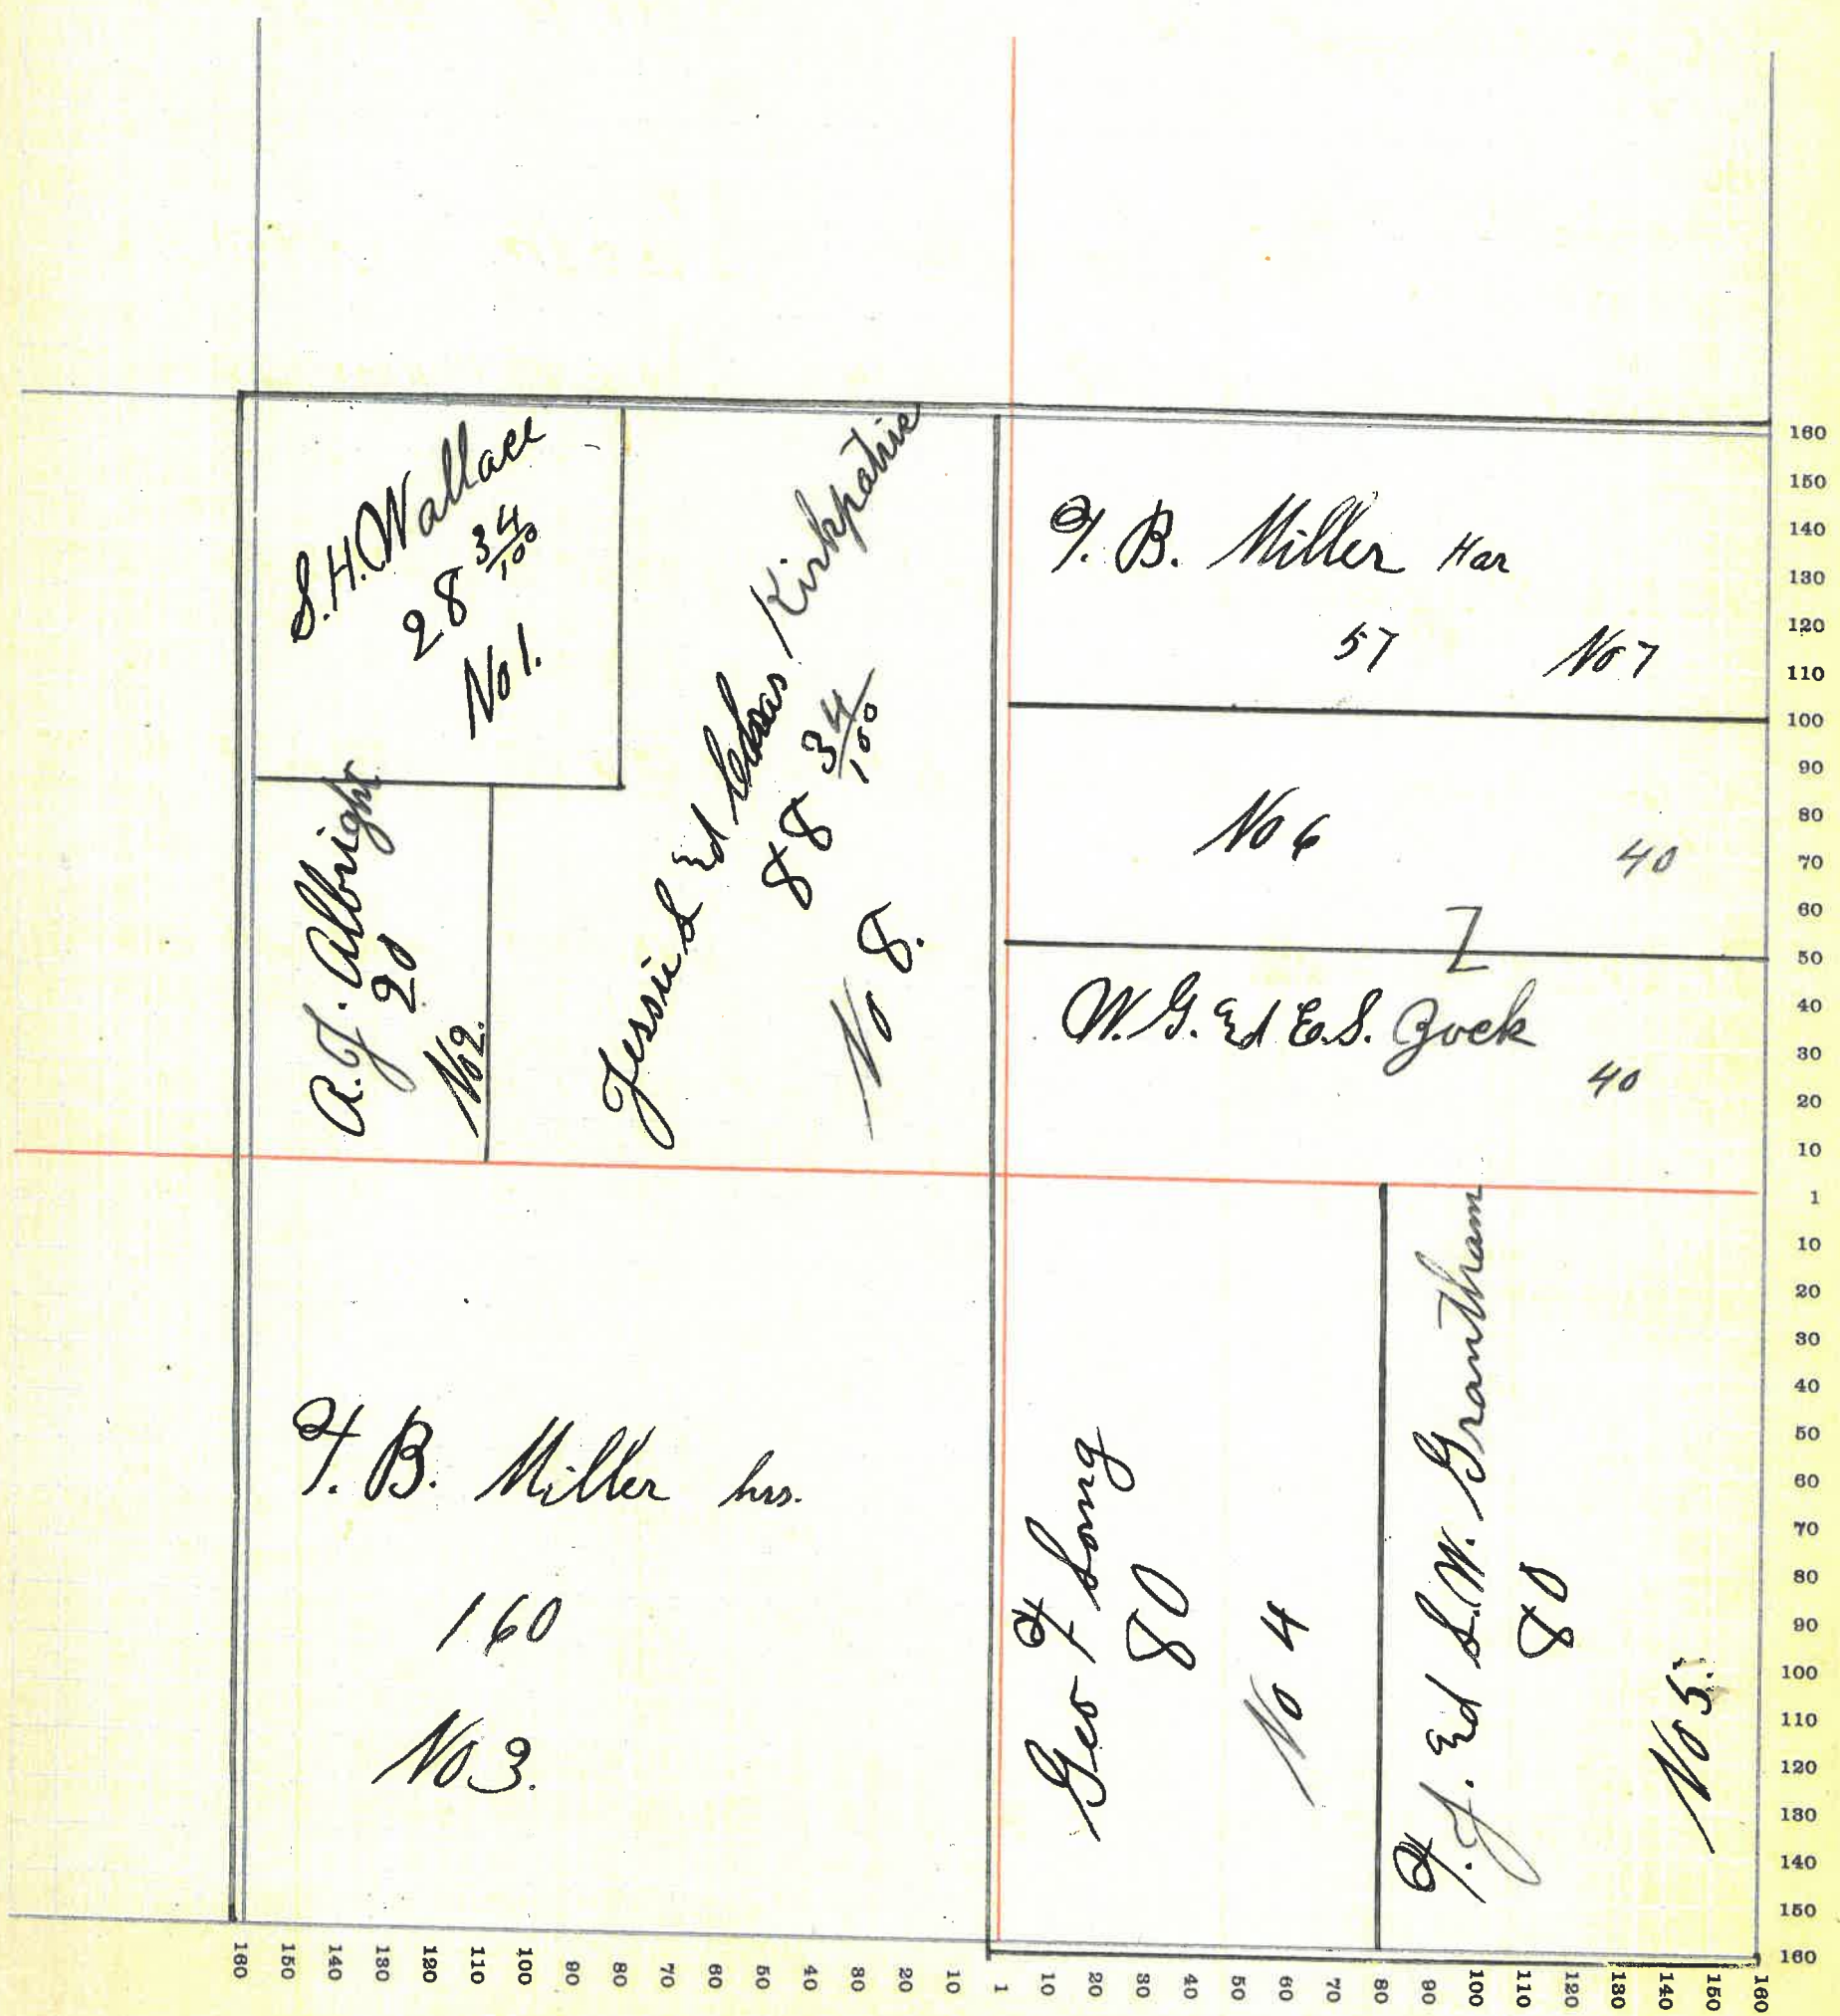 S.H. Wallace
28 34/100
No 1.
A.J. Albright
20
No 2.
Jessie Ed Chas Kirkpatric
88 34/100
No 8.
F. B. Miller Har
57 No 7
No 6 40
Z
W. G. Ed E. S. Zock
40
F. B. Miller hrs.
160
No 3.
Geo F Long
80
No 4
F. J. Ed S. W. Grantham
80
No 5.
160
150
140
130
120
110
100
90
80
70
60
50
40
30
20
10
1
10
20
30
40
50
60
70
80
90
100
110
120
130
140
150
160
160 150 140 130 120 110 100 90 80 70 60 50 40 30 20 10 1 10 20 30 40 50 60 70 80 90 100 110 120 130 140 150 160